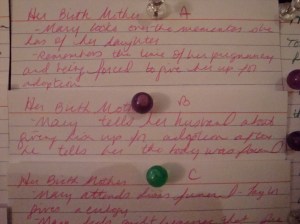 Her Birth Mother A
- Mary looks over the mementos she
has of her daughter
- Remembers the time of her pregnancy
and being forced to give her up for
adoption
Her Birth Mother B
- Mary tells her husband about
giving her up for adoption after
he tells her the body was found
Her Birth Mother C
- Mary attends funeral - Taylor
gives a eulogy
- Mary that